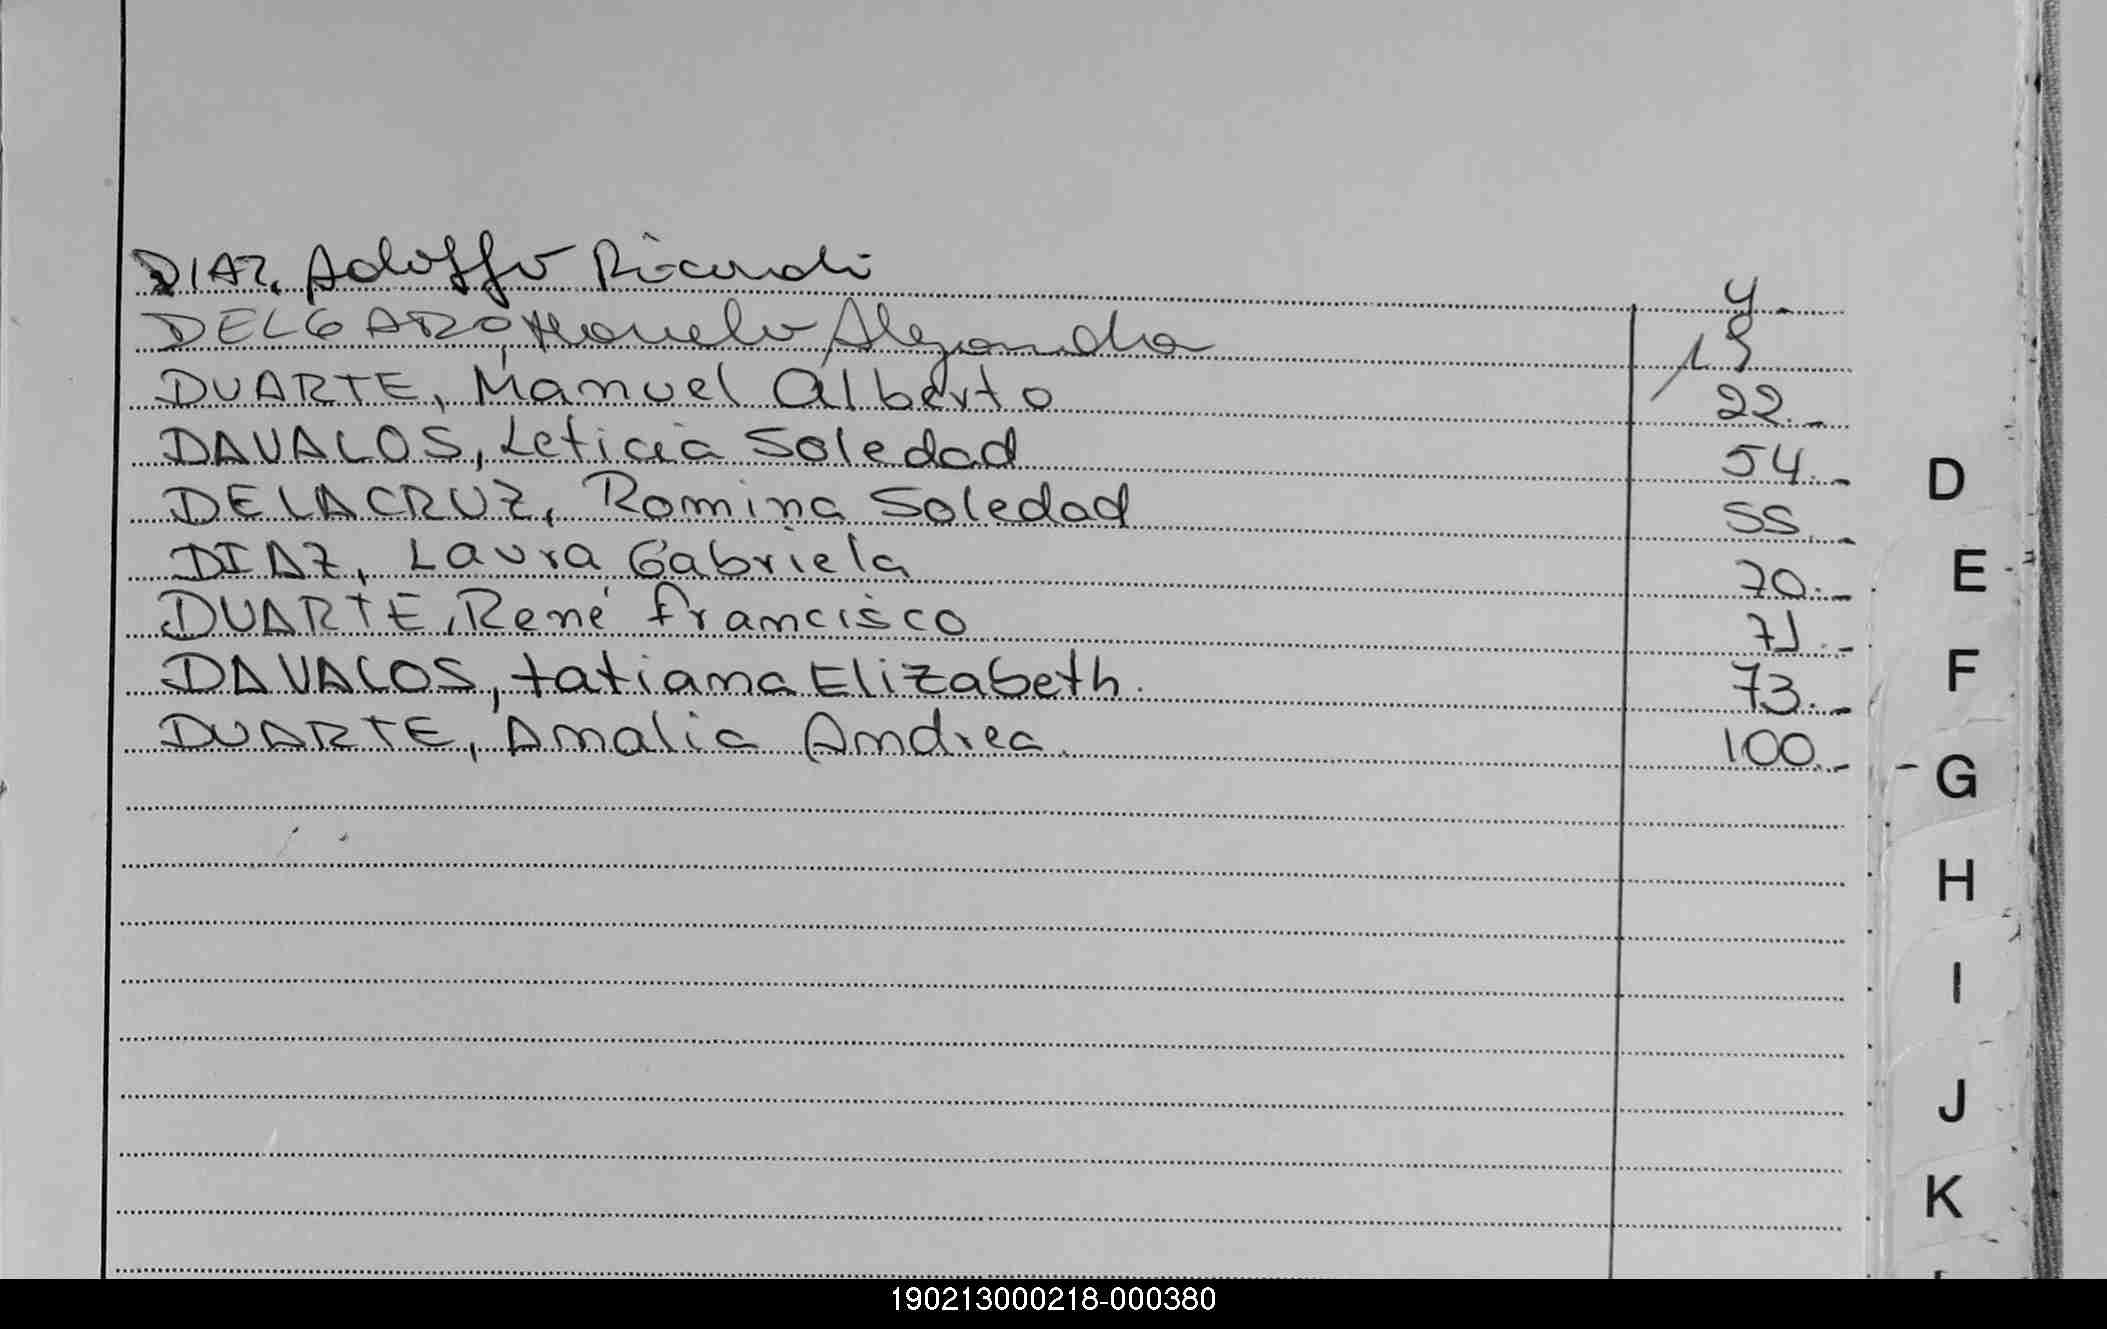 DIAZ, Adolfo Ricardo 4.-
DELGADO, Alejandra
DUARTE, Manuel Alberto 22.-
DAVALOS, Leticia Soledad 54.-
DELACRUZ, Romina Soledad 55.-
DIAZ, Laura Gabriela 70.-
DUARTE, René francisco 71.-
DAVALOS, tatiana Elizabeth. 73.-
DUARTE, Amalia Andrea. 100.-
D
E
F
G
H
I
J
K
190213000218-000380